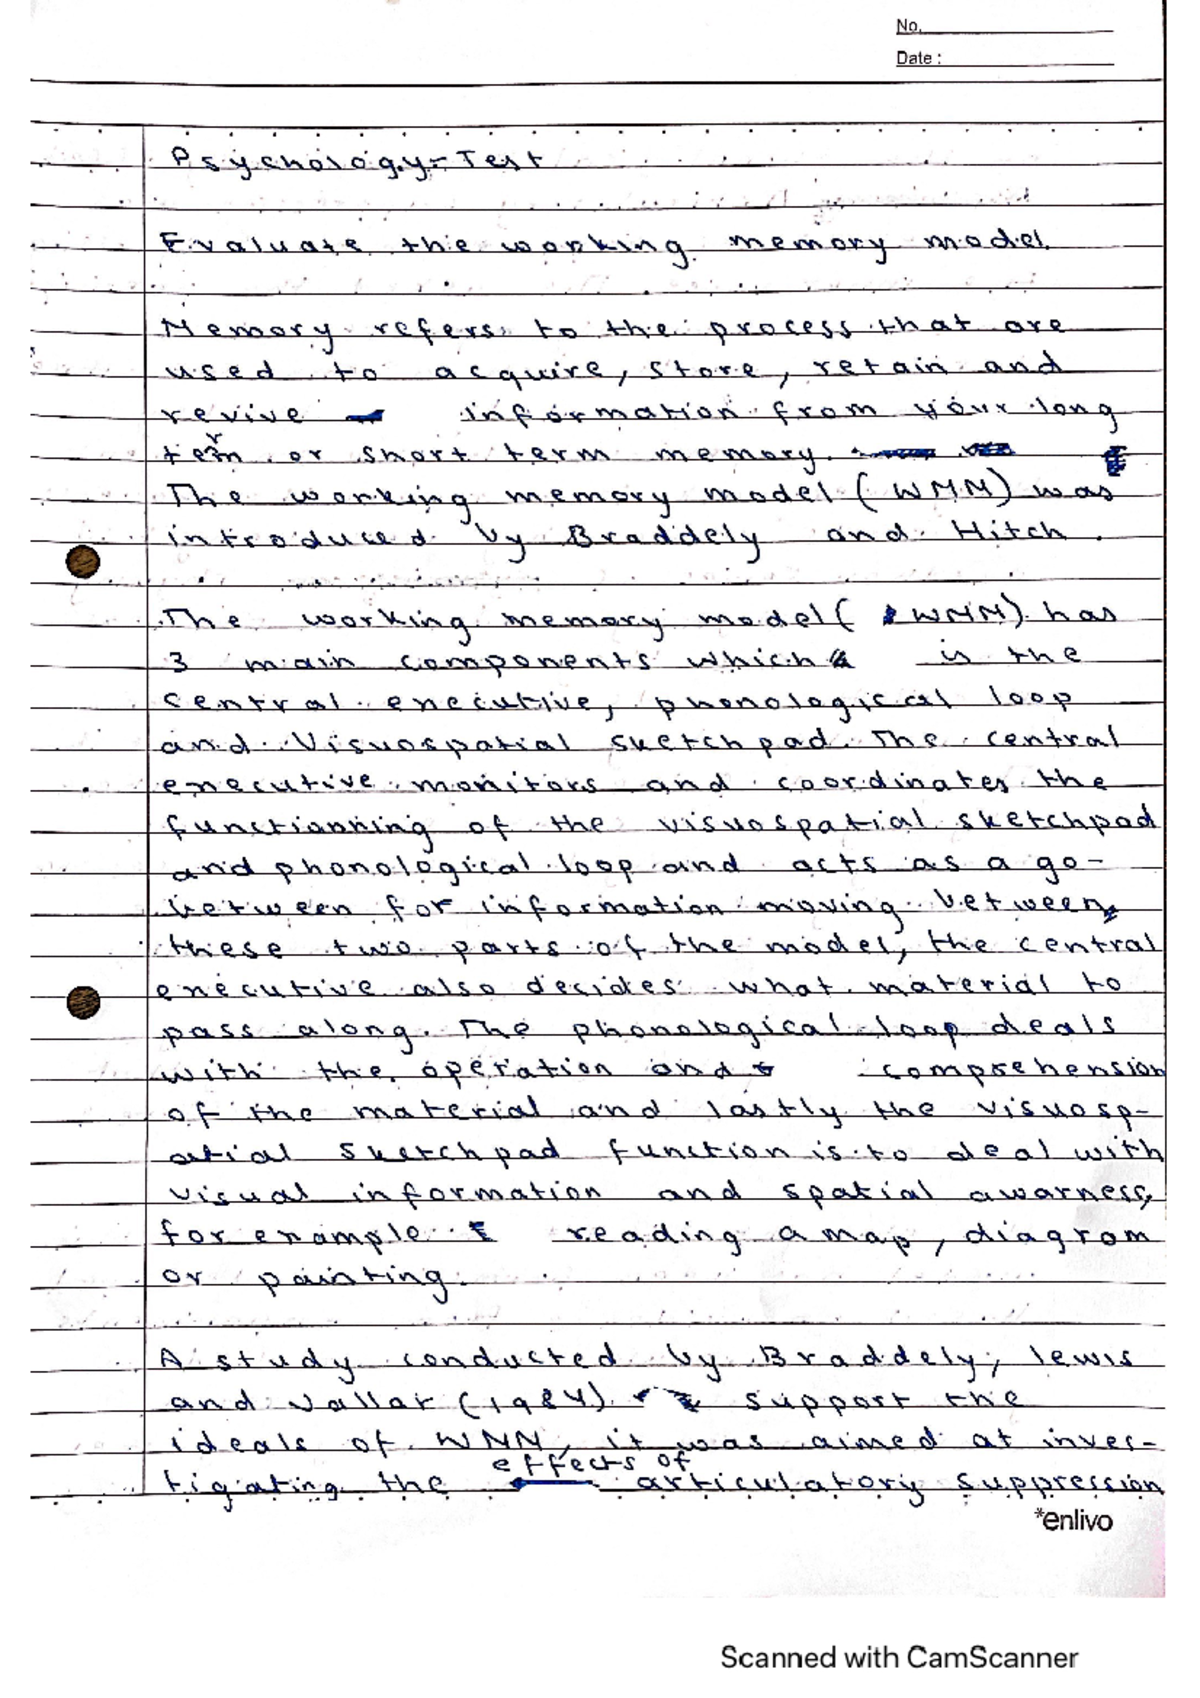 No.
Date :
Psychology-Test
Evaluate the working memory model.
Memory refers to the process that are
used to acquire, store, retain and
revive information from your long
term or short term memory.
The working memory model (WMM) was
introduced by Braddely and Hitch.
The working memory model ( WMM) has
3 main components which is the
central executive, phonological loop
and Visuospatial sketchpad. The central
executive monitors and coordinates the
functionning of the visuospatial sketchpad
and phonological loop and acts as a go-
between for information moving between
these two parts of the model, the central
executive also decides what material to
pass along. The phonological loop deals
with the operation and comprehension
of the material and lastly the visuosp-
atial sketchpad function is to deal with
visual information and spatial awarness,
for example reading a map, diagram
or painting.
A study conducted by Braddely, lewis
and Vallar (1984). support the
ideals of WMM, it was aimed at inves-
tigating the effects of articulatory suppression
*enlivo
Scanned with CamScanner